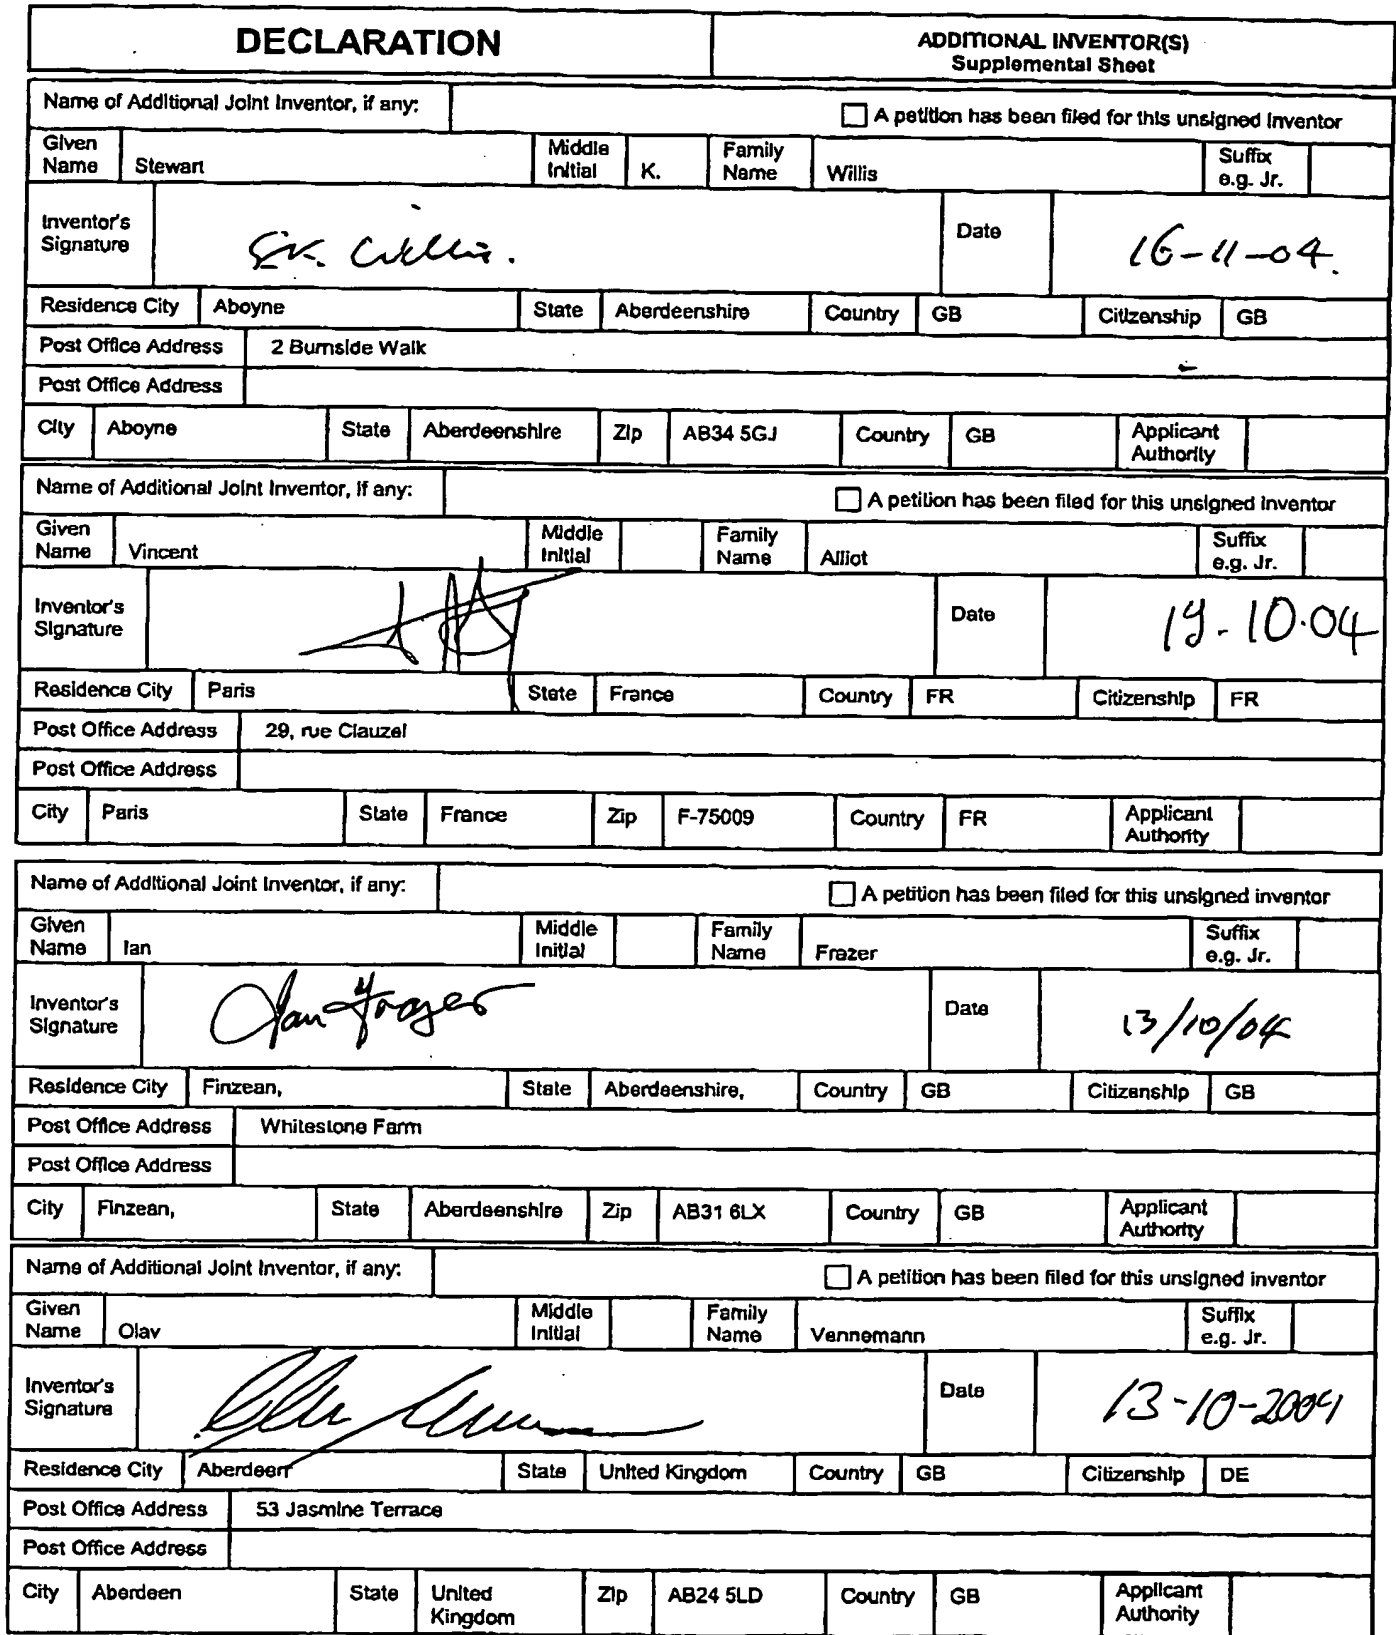 DECLARATION
ADDITIONAL INVENTOR(S)
Supplemental Sheet
Name of Additional Joint Inventor, if any:
A petition has been filed for this unsigned inventor
Given Name Stewart Middle Initial K. Family Name Willis Suffix e.g. Jr.
Inventor's Signature S.K. Willis. Date 16-11-04.
Residence City Aboyne State Aberdeenshire Country GB Citizenship GB
Post Office Address 2 Burnside Walk
Post Office Address
City Aboyne State Aberdeenshire Zip AB34 5GJ Country GB Applicant Authority
Name of Additional Joint Inventor, if any:
A petition has been filed for this unsigned inventor
Given Name Vincent Middle Initial Family Name Alliot Suffix e.g. Jr.
Inventor's Signature Date 19-10-04
Residence City Paris State France Country FR Citizenship FR
Post Office Address 29, rue Clauzel
Post Office Address
City Paris State France Zip F-75009 Country FR Applicant Authority
Name of Additional Joint Inventor, if any:
A petition has been filed for this unsigned inventor
Given Name Ian Middle Initial Family Name Frazer Suffix e.g. Jr.
Inventor's Signature Ian Frazer Date 13/10/04
Residence City Finzean, State Aberdeenshire, Country GB Citizenship GB
Post Office Address Whitestone Farm
Post Office Address
City Finzean, State Aberdeenshire Zip AB31 6LX Country GB Applicant Authority
Name of Additional Joint Inventor, if any:
A petition has been filed for this unsigned inventor
Given Name Olav Middle Initial Family Name Vennemann Suffix e.g. Jr.
Inventor's Signature Date 13-10-2004
Residence City Aberdeen State United Kingdom Country GB Citizenship DE
Post Office Address 53 Jasmine Terrace
Post Office Address
City Aberdeen State United Kingdom Zip AB24 5LD Country GB Applicant Authority